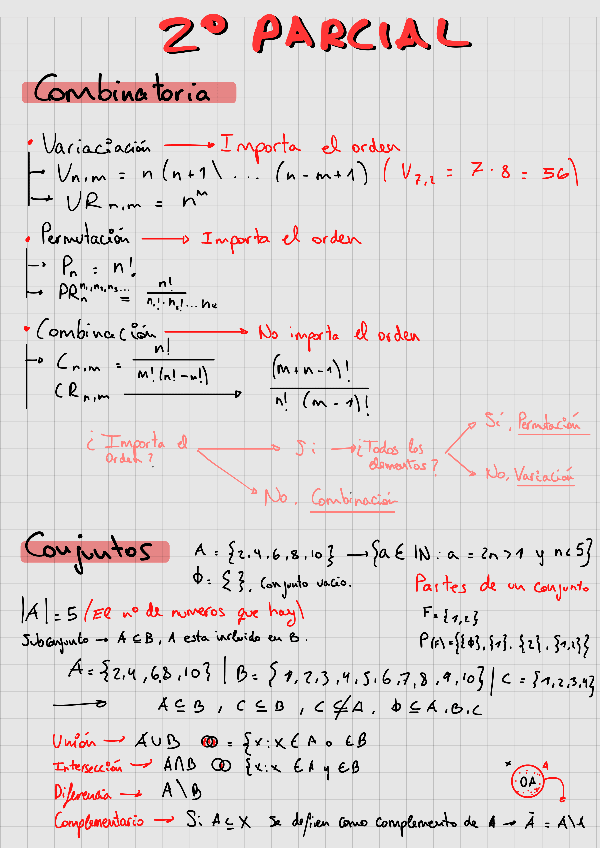 2º PARCIAL
Combinatoria
• Variación → Importa el orden
→ Vn,m = n (n+1) ... (n-m+1) (V7,2 = 7 · 8 = 56)
→ VR n,m = n^m
• Permutación → Importa el orden
→ Pn = n!
→ PRn^n1,n2,n3... = n! / n1! · n2! ... nk
• Combinación → No importa el orden
→ Cn,m = n! / m! (n! - n!)
CRn,m → (m+n-1)! / n! (m-1)!
¿Importa el Orden? → Si → ¿Todos los elementos? → Sí, Permutación
No, Variación
No, Combinación
Conjuntos
A = {2,4,6,8,10} → {a ∈ IN : a = 2n > 1 y n < 5}
Φ = { }, Conjunto vacio.
Partes de un conjunto
|A| = 5 (El nº de numeros que hay)
F = {1,2}
Subconjunto → A ⊆ B, A esta incluido en B.
P(F) = {{Φ}, {1}, {2}, {1,2}}
A = {2,4,6,8,10} | B = {1,2,3,4,5,6,7,8,9,10} | C = {1,2,3,4}
→ A ⊆ B, C ⊆ B, C ⊈ A, Φ ⊆ A,B,C
Unión → A ∪ B = {x : x ∈ A o ∈ B
Intersección → A ∩ B {x : x ∈ A y ∈ B
Diferencia → A \ B
x A
OA
Complementario → Si A ⊆ X se defien como complemento de A → Ā = A\A